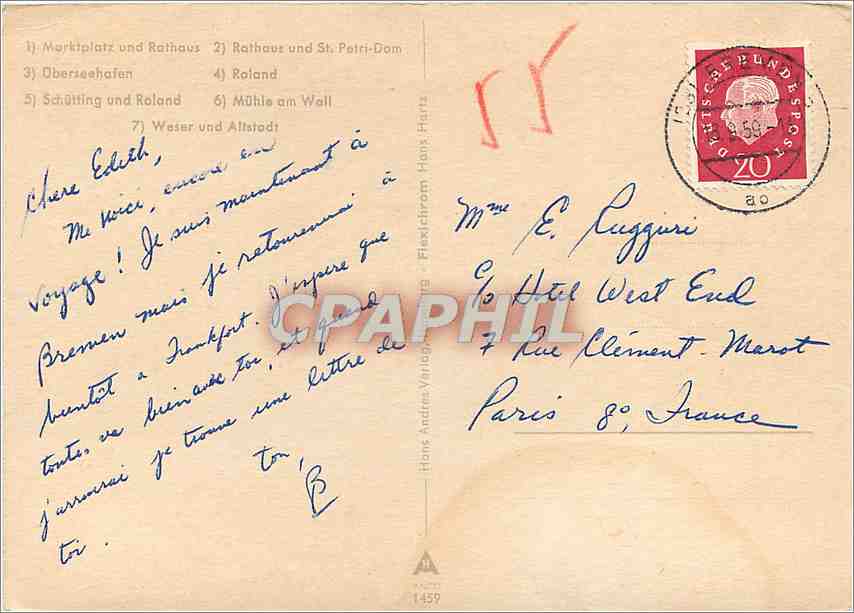 1) Marktplatz und Rathaus 2) Rathaus und St. Petri-Dom
3) Überseehafen 4) Roland
5) Schütting und Roland 6) Mühle am Wall
7) Weser und Altstadt
Chere Edith,
Me voici, encore en
voyage! Je suis maintenant à
Bremen mais je retournerai à
bientôt a Frankfort. J'espere que
toutes va bien avec toi, et quand
j'arriverai je trouve une lettre de
toi.
ton,
B
Hans Andres Verlag, - Flexichrom Hans Hartz
1459
55
DEUTSCHE BUNDESPOST
20
9.59
ao
Mme E. Ruggieri
c/o Hotel West End
7 Rue Clément-Marot
Paris 8o, France
CPAPHIL